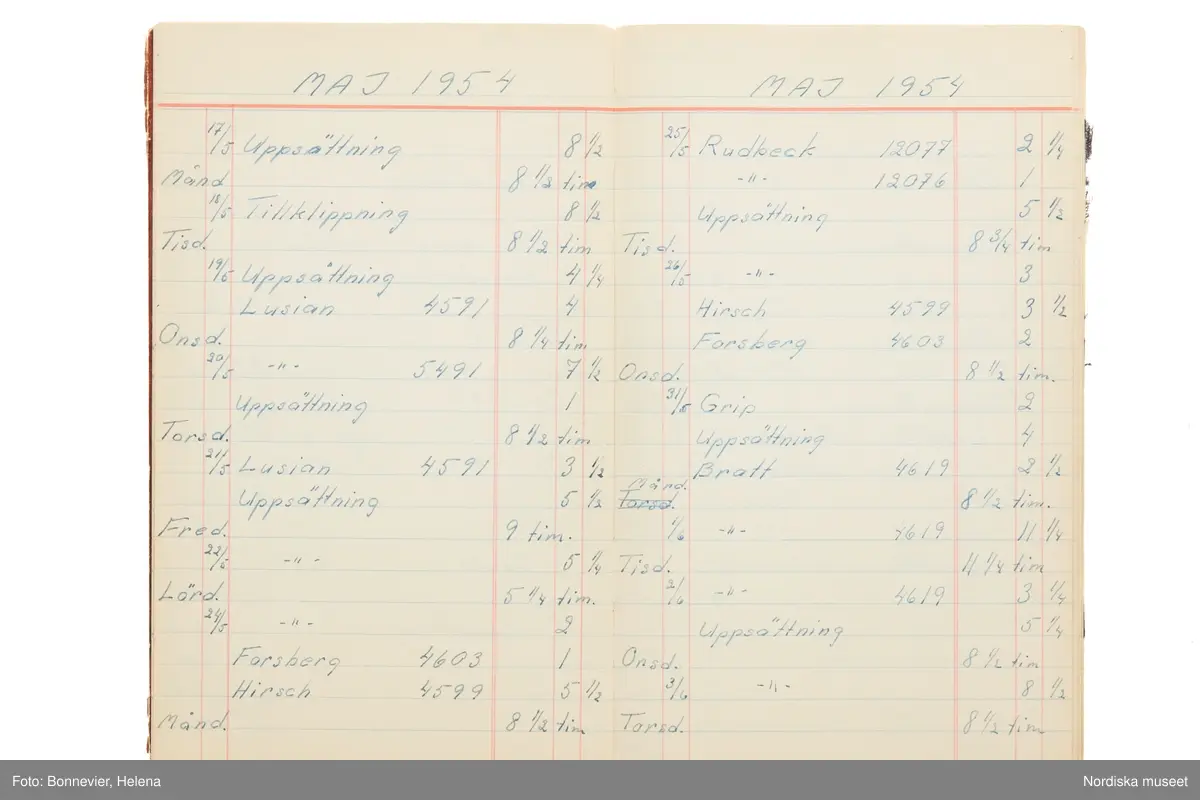 MAJ 1954
17/5 Uppsättning 8 1/2
Månd 8 1/2 tim
18/5 Tillklippning 8 1/2
Tisd. 8 1/2 tim
19/5 Uppsättning 4 1/4
Lusian 4591 4
Onsd. 8 1/4 tim
20/5 -"- 5491 7 1/2
Uppsättning 1
Torsd. 8 1/2 tim
21/5 Lusian 4591 3 1/2
Uppsättning 5 1/2
Fred. 9 tim.
22/5 -"- 5 1/4
Lörd. 5 1/4 tim.
24/5 -"- 2
Forsberg 4603 1
Hirsch 4599 5 1/2
Månd. 8 1/2 tim
MAJ 1954
25/5 Rudbeck 12077 2 1/4
-"- 12076 1
Uppsättning 5 1/2
Tisd. 8 3/4 tim
26/5 -"- 3
Hirsch 4599 3 1/2
Forsberg 4603 2
Onsd. 8 1/2 tim.
31/5 Grip 2
Uppsättning 4
Bratt 4619 2 1/2
Månd.
Torsd. 8 1/2 tim.
1/6 -"- 4619 11 1/4
Tisd. 11 1/4 tim
2/6 -"- 4619 3 1/4
Uppsättning 5 1/4
Onsd. 8 1/2 tim
3/6 -"- 8 1/2
Torsd. 8 1/2 tim
Foto: Bonnevier, Helena
Nordiska museet